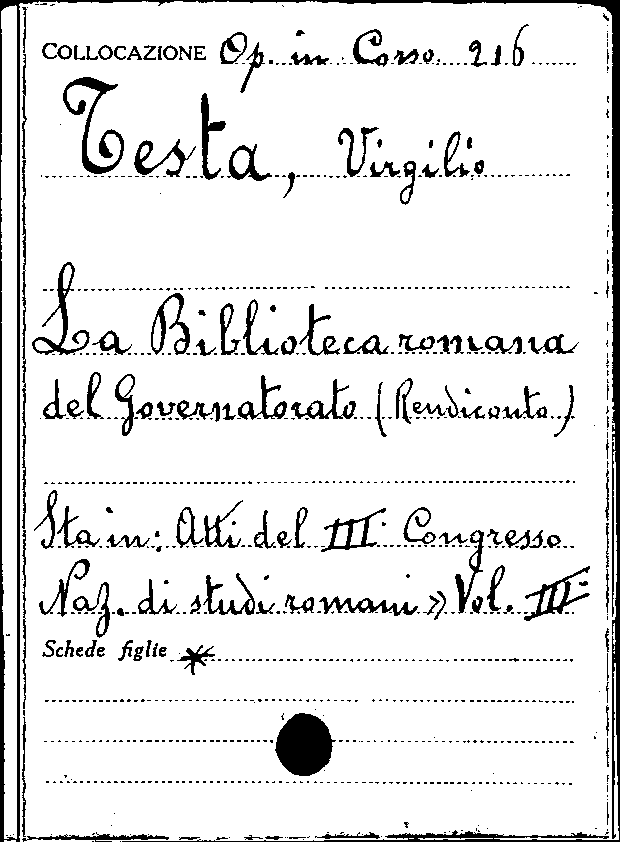 COLLOCAZIONE Op. in Corso 216
Testa, Virgilio
La Biblioteca romana
del Governatorato (Rendiconto)
Sta in: Atti del III° Congresso
Naz. di studi romani » Vol. III°
Schede figlie *